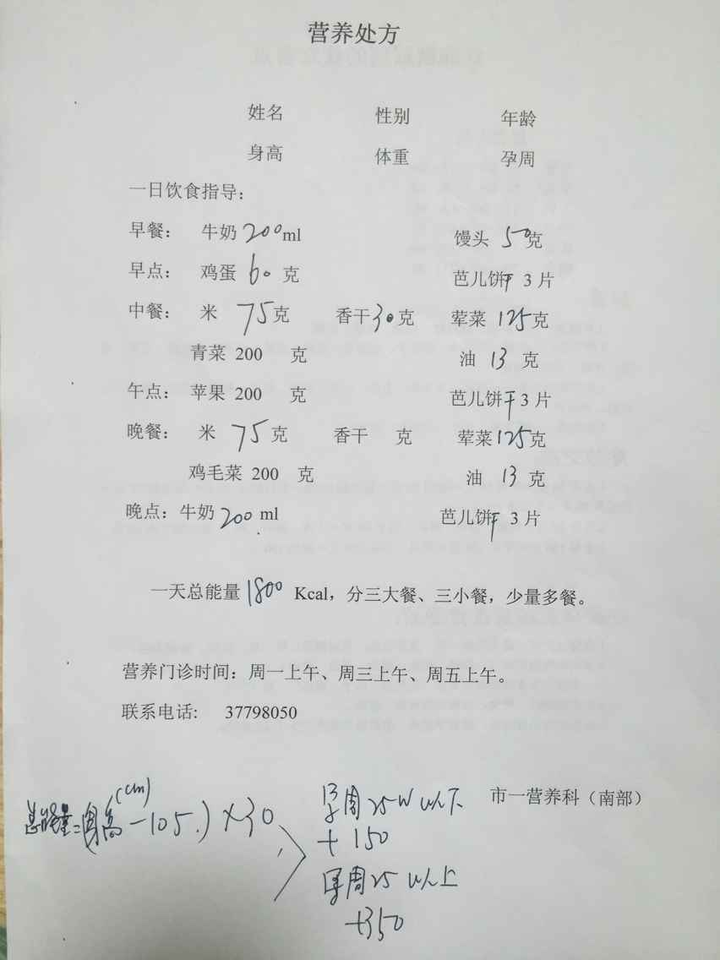 营养处方
姓名 性别 年龄
身高 体重 孕周
一日饮食指导:
早餐: 牛奶 200 ml 馒头 50 克
早点: 鸡蛋 60 克 芭儿饼干 3 片
中餐: 米 75 克 香干 30 克 荤菜 125 克
青菜 200 克 油 13 克
午点: 苹果 200 克 芭儿饼干 3 片
晚餐: 米 75 克 香干 克 荤菜 125 克
鸡毛菜 200 克 油 13 克
晚点: 牛奶 200 ml 芭儿饼干 3 片
一天总能量 1800 Kcal，分三大餐、三小餐，少量多餐。
营养门诊时间: 周一上午、周三上午、周五上午。
联系电话: 37798050
市一营养科（南部）
总能量=(身高(cm)-105.)×30
孕周25W以下
+150
孕周25以上
+350